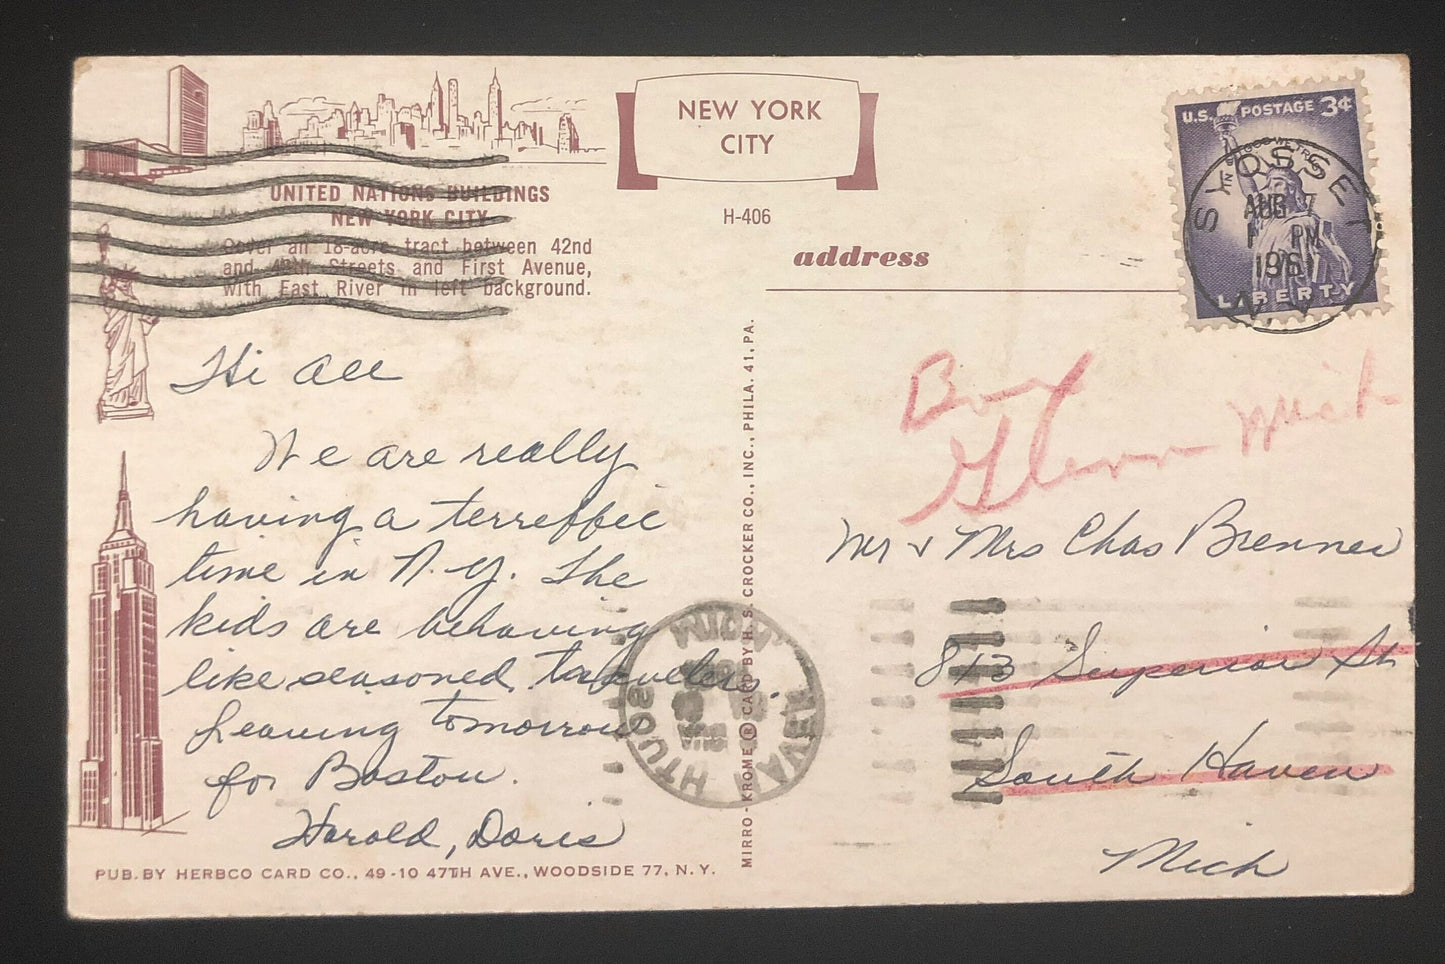 NEW YORK
CITY
UNITED NATIONS BUILDINGS
NEW YORK CITY
Cover an 18-acre tract between 42nd
and 48th Streets and First Avenue,
with East River in left background.
H-406
address
U.S. POSTAGE 3¢
IN GOD WE TRUST
LIBERTY
SYOSSET
AUG 7
PM
1961
N.Y.
Hi All
We are really
having a terreffic
time in N.Y. The
kids are behaving
like seasoned travelers.
Leaving tomorrow
for Boston.
Harold, Doris
Glenn Mich
Mr & Mrs Chas Brenner
813 Superior St
South Haven
Mich
SOUTH HAVEN
MICH
MIRRO-KROME ® CARD BY H. S. CROCKER CO., INC., PHILA. 41, PA.
PUB. BY HERBCO CARD CO., 49-10 47TH AVE., WOODSIDE 77, N. Y.